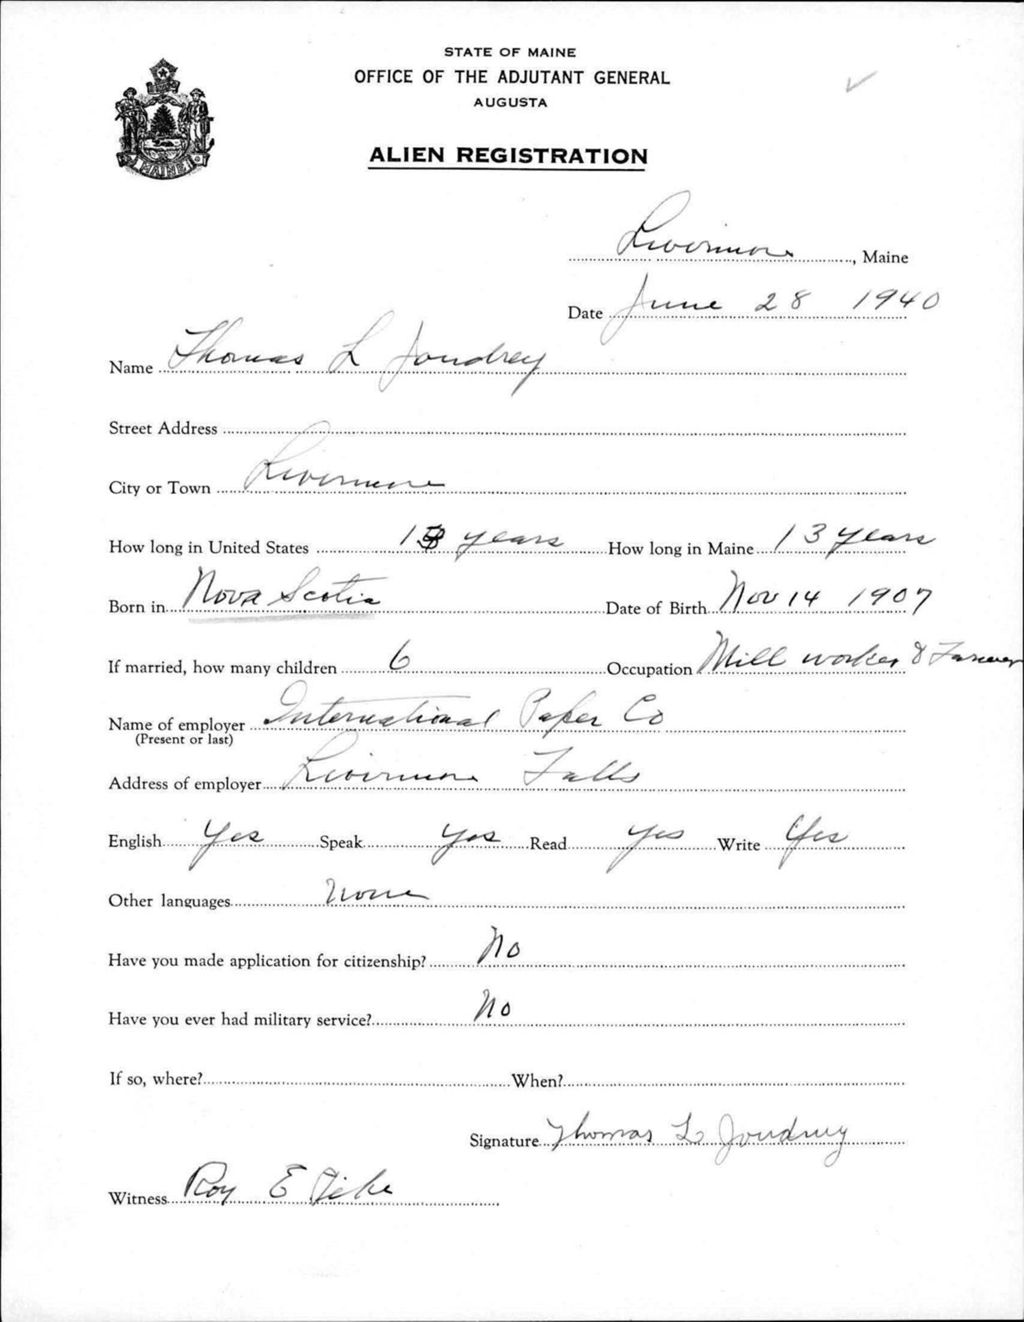 STATE OF MAINE
OFFICE OF THE ADJUTANT GENERAL
AUGUSTA
ALIEN REGISTRATION
MAINE
Livermore, Maine
Date June 28 1940
Name Thomas L Joudrey
Street Address
City or Town Livermore
How long in United States years How long in Maine 13 years
Born in Nova Scotia Date of Birth Nov 14 1907
If married, how many children 6 Occupation Mill worker & Farmer
Name of employer International Paper Co
(Present or last)
Address of employer Livermore Falls
English Yes Speak Yes Read Yes Write Yes
Other languages None
Have you made application for citizenship? No
Have you ever had military service? No
If so, where? When?
Signature Thomas L Joudrey
Witness Roy E